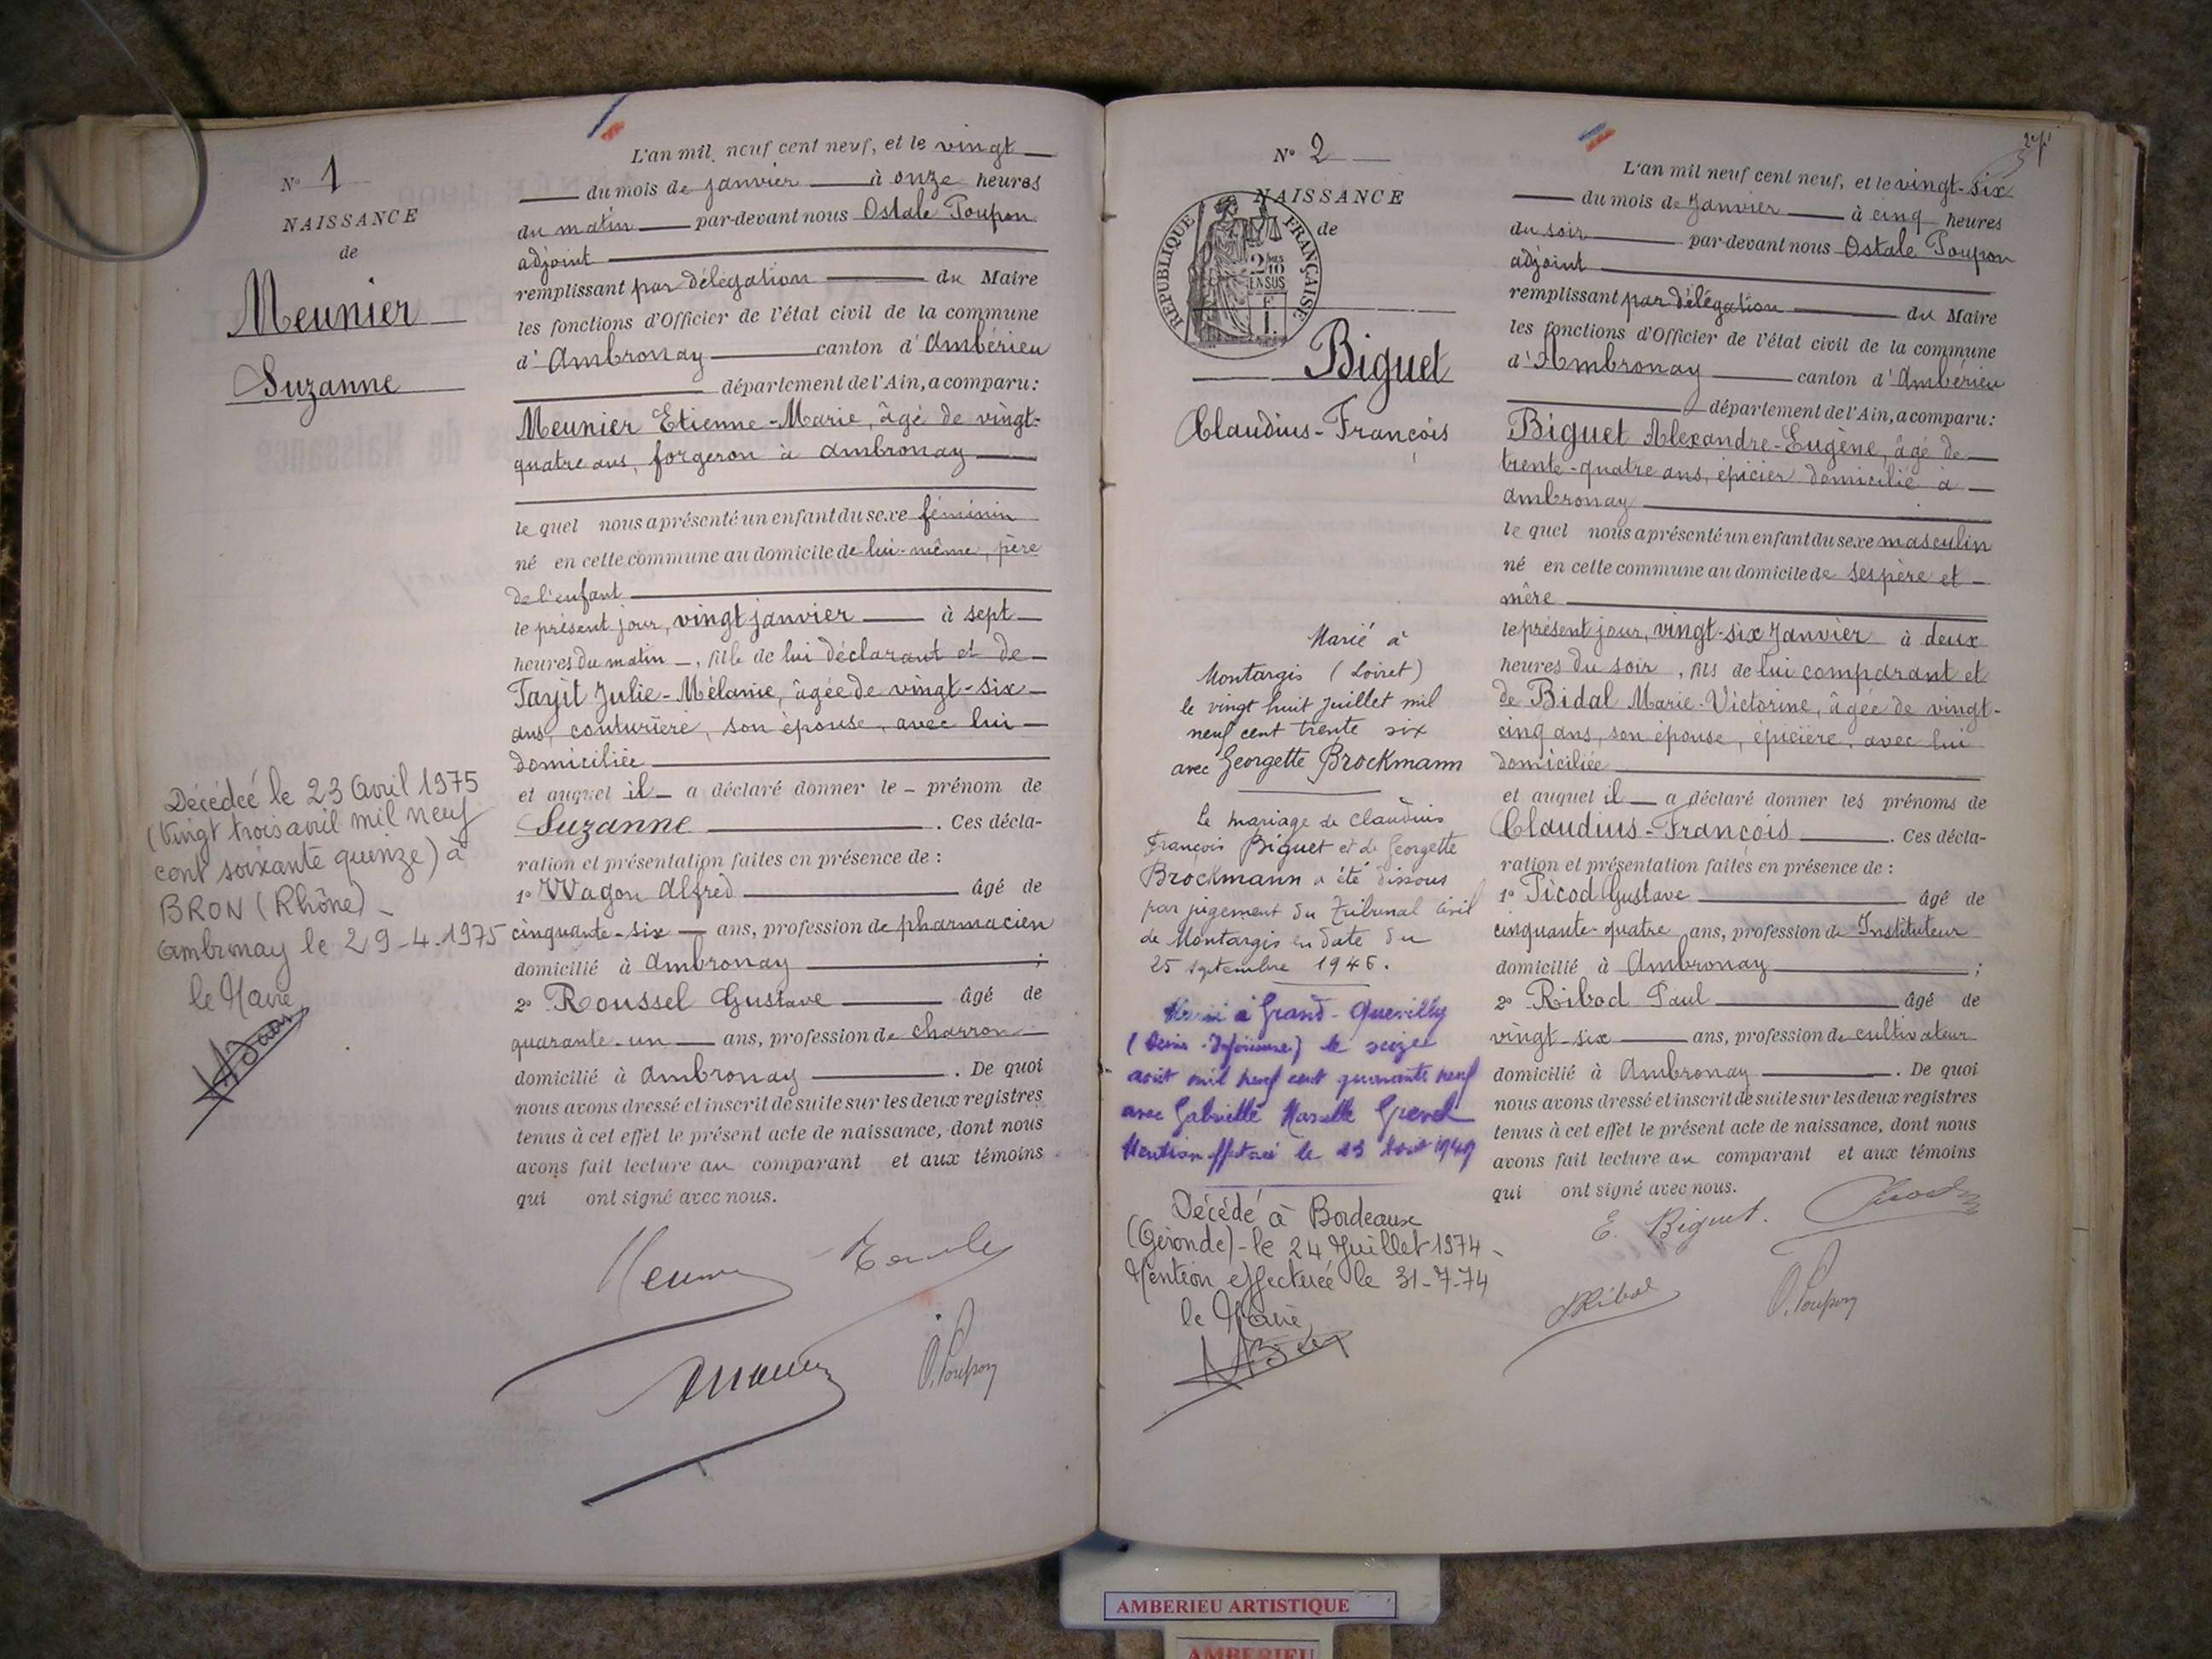 N° 1
NAISSANCE
de
Meunier
Suzanne
Décédée le 23 Avril 1975
(Vingt trois avril mil neuf
cent soixante quinze) à
BRON (Rhône) -
Ambronay le 29-4-1975
le Maire
L'an mil neuf cent neuf, et le vingt
du mois de Janvier à onze heures
du matin par-devant nous Ostale Poupon
adjoint
remplissant par délégation du Maire
les fonctions d'Officier de l'état civil de la commune
d'Ambronay canton d'Ambérieu
département de l'Ain, a comparu:
Meunier Etienne-Marie, âgé de vingt-
quatre ans, forgeron à Ambronay
le quel nous a présenté un enfant du sexe féminin
né en cette commune au domicile de lui-même, père
de l'enfant
le présent jour, vingt janvier à sept
heures du matin, fille de lui déclarant et de
Julie-Mélanie, âgée de vingt-six
ans, couturière, son épouse, avec lui
domiciliée
et auquel il a déclaré donner le prénom de
Suzanne. Ces décla-
ration et présentation faites en présence de :
1° Wagon Alfred âgé de
cinquante-six ans, profession de pharmacien
domicilié à Ambronay ;
2° Roussel Gustave âgé de
quarante-un ans, profession de charron
domicilié à Ambronay. De quoi
nous avons dressé et inscrit de suite sur les deux registres
tenus à cet effet le présent acte de naissance, dont nous
avons fait lecture au comparant et aux témoins
qui ont signé avec nous.
O. Poupon
N° 2
NAISSANCE
de
RÉPUBLIQUE FRANÇAISE
2/10 EN SUS
Biguet
Claudius-François
Marié à
Montargis (Loiret)
le vingt huit Juillet mil
neuf cent trente six
avec Georgette Brockmann
Le mariage de Claudius
François Biguet et de Georgette
Brockmann a été dissous
par jugement du Tribunal civil
de Montargis en date du
25 septembre 1946.
à Grand-Quevilly
(Seine-Inférieure) le seize
août mil neuf cent quarante neuf
avec Gabrielle Marcelle
Mention effectuée le 23 Août 1949
Décédé à Bordeaux
(Gironde) - le 24 Juillet 1974 -
Mention effectuée le 31-7-74
le Maire,
L'an mil neuf cent neuf, et le vingt-six
du mois de Janvier à cinq heures
du soir par-devant nous Ostale Poupon
adjoint
remplissant par délégation du Maire
les fonctions d'Officier de l'état civil de la commune
d'Ambronay canton d'Ambérieu
département de l'Ain, a comparu:
Biguet Alexandre-Eugène, âgé de
trente-quatre ans, épicier domicilié à
Ambronay
le quel nous a présenté un enfant du sexe masculin
né en cette commune au domicile de ses père et
mère
le présent jour, vingt-six Janvier à deux
heures du soir, fils de lui comparant et
de Bidal Marie-Victorine, âgée de vingt-
cinq ans, son épouse, épicière, avec lui
domiciliée
et auquel il a déclaré donner les prénoms de
Claudius-François. Ces décla-
ration et présentation faites en présence de :
1° Picod Gustave âgé de
cinquante-quatre ans, profession de Instituteur
domicilié à Ambronay ;
2° Ribod Paul âgé de
vingt-six ans, profession de cultivateur
domicilié à Ambronay. De quoi
nous avons dressé et inscrit de suite sur les deux registres
tenus à cet effet le présent acte de naissance, dont nous
avons fait lecture au comparant et aux témoins
qui ont signé avec nous.
E. Biguet.
O. Poupon
AMBERIEU ARTISTIQUE
AMBERIEU